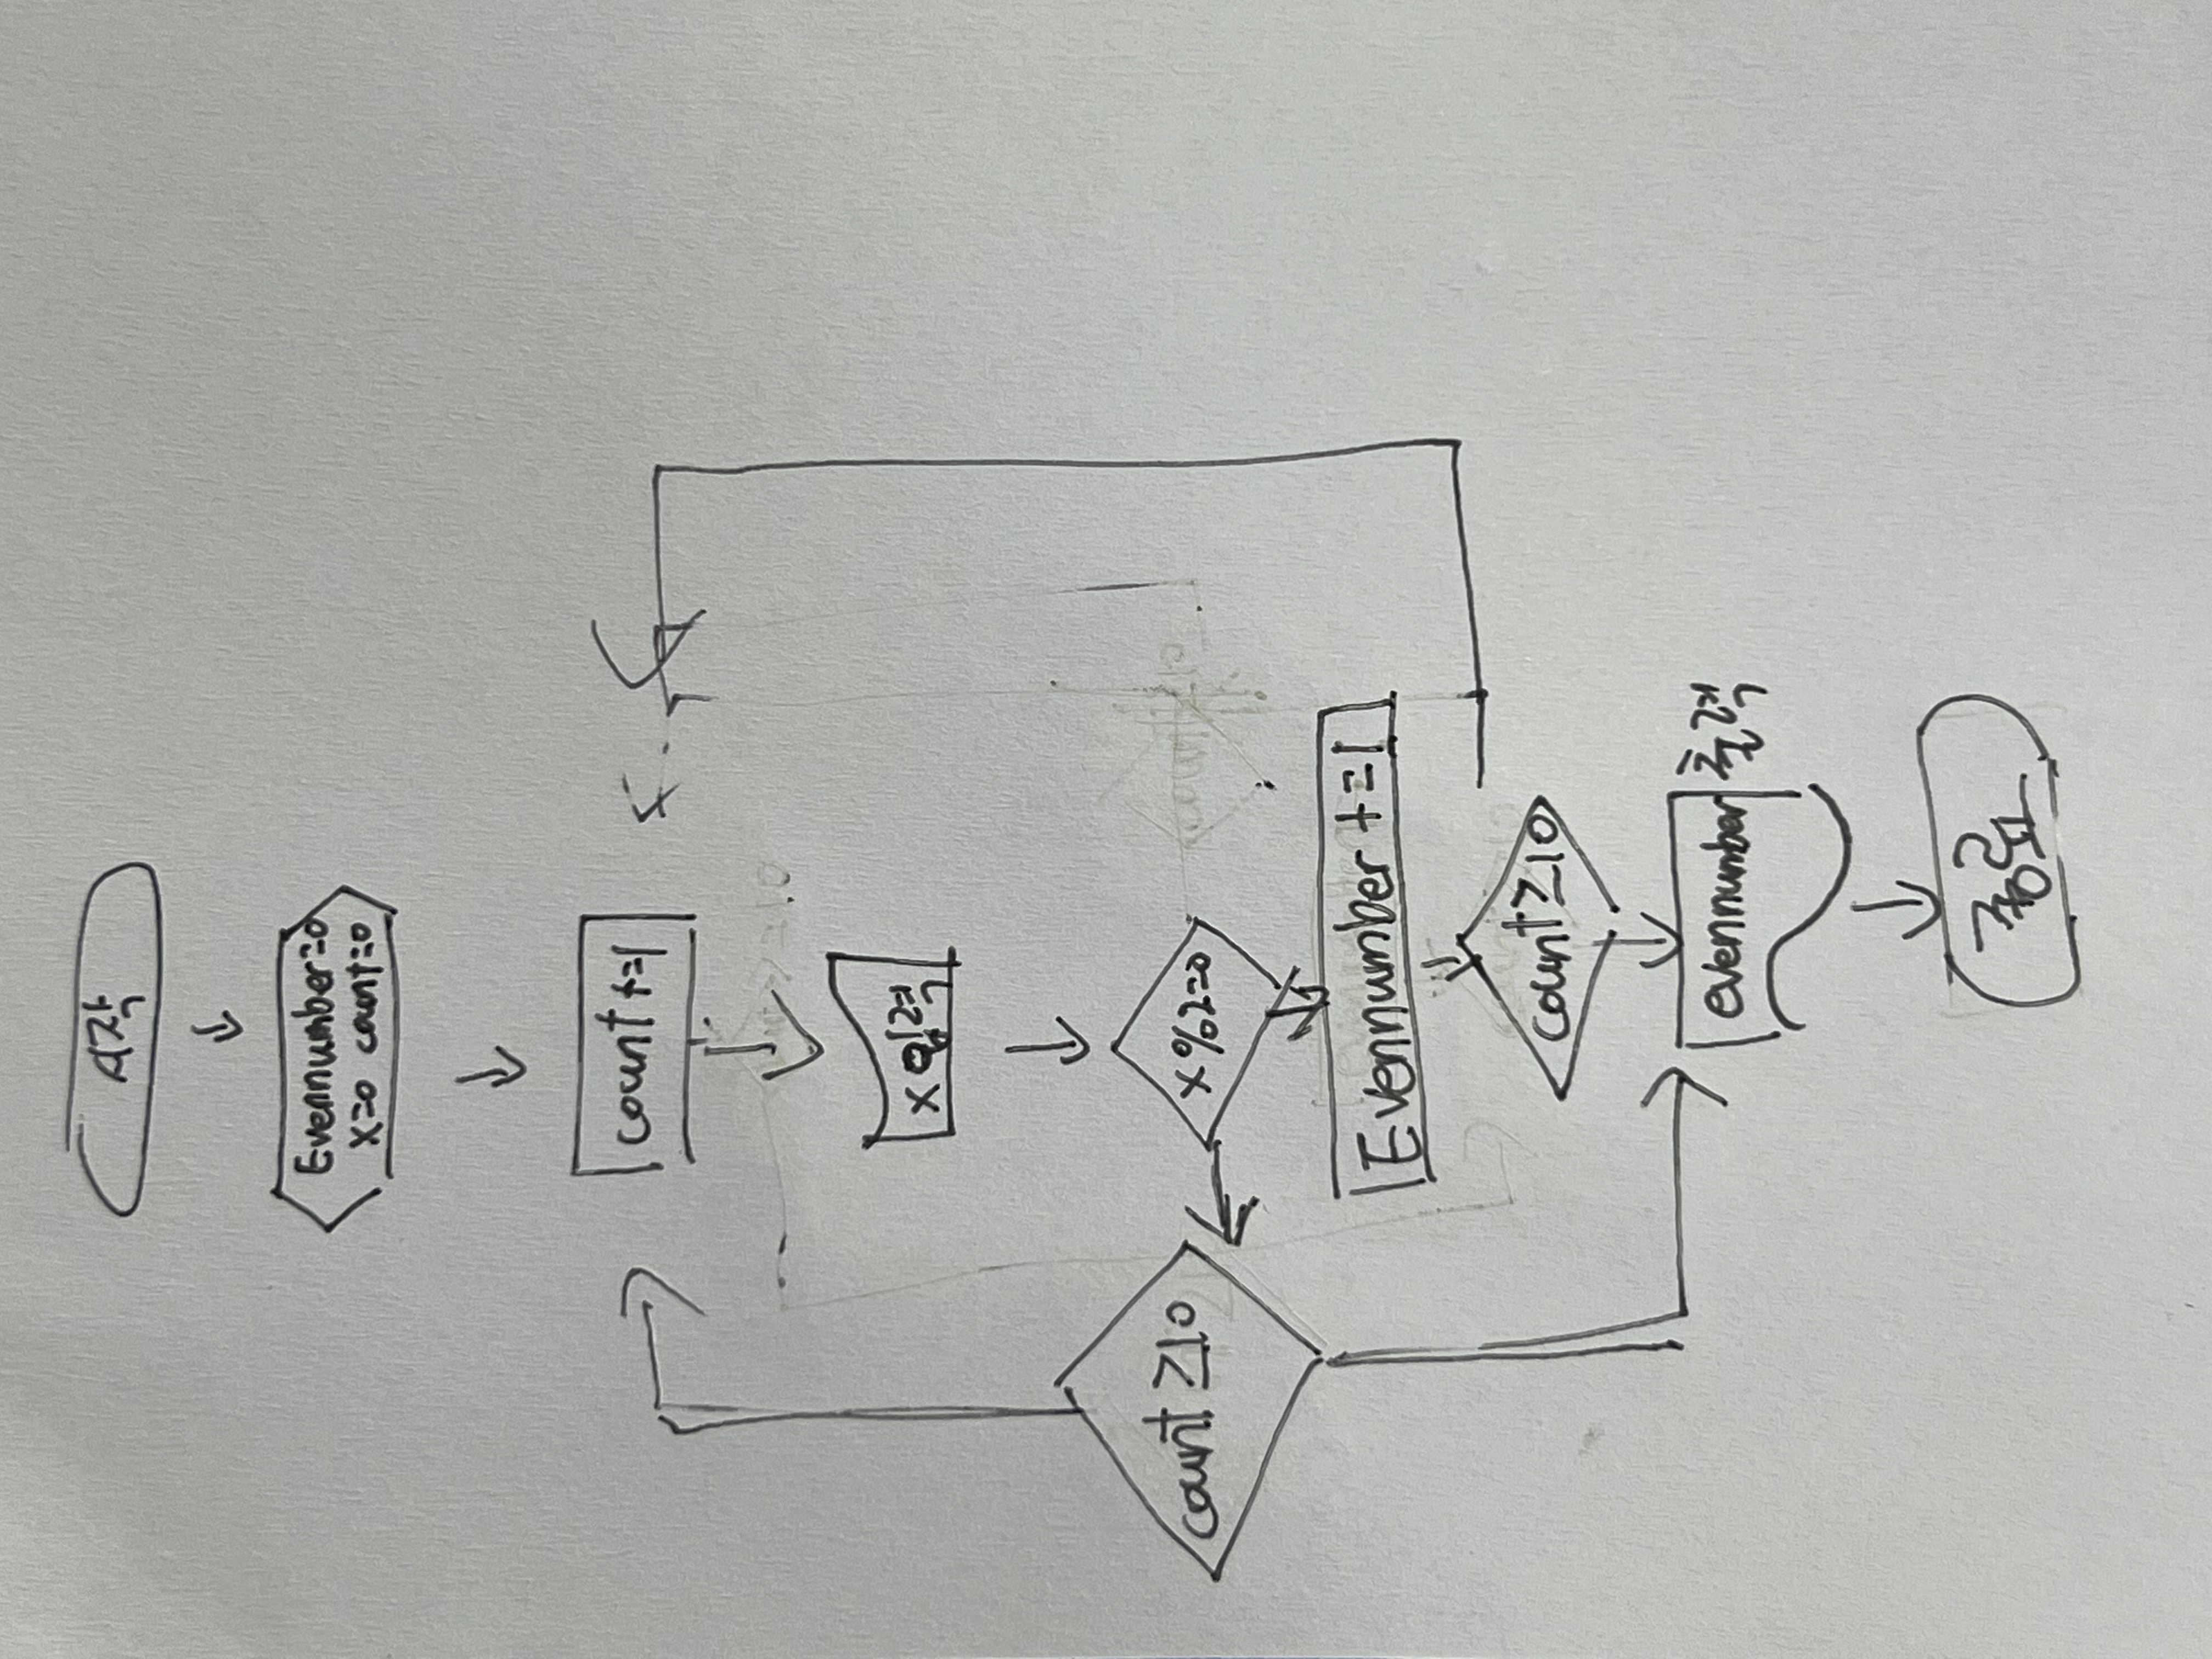 시작
Evennumber=0
x=0 count=0
count +=1
x 입력
count ≥10
x%2=0
Evennumber +=1
count≥10
evennumber 출력
종료